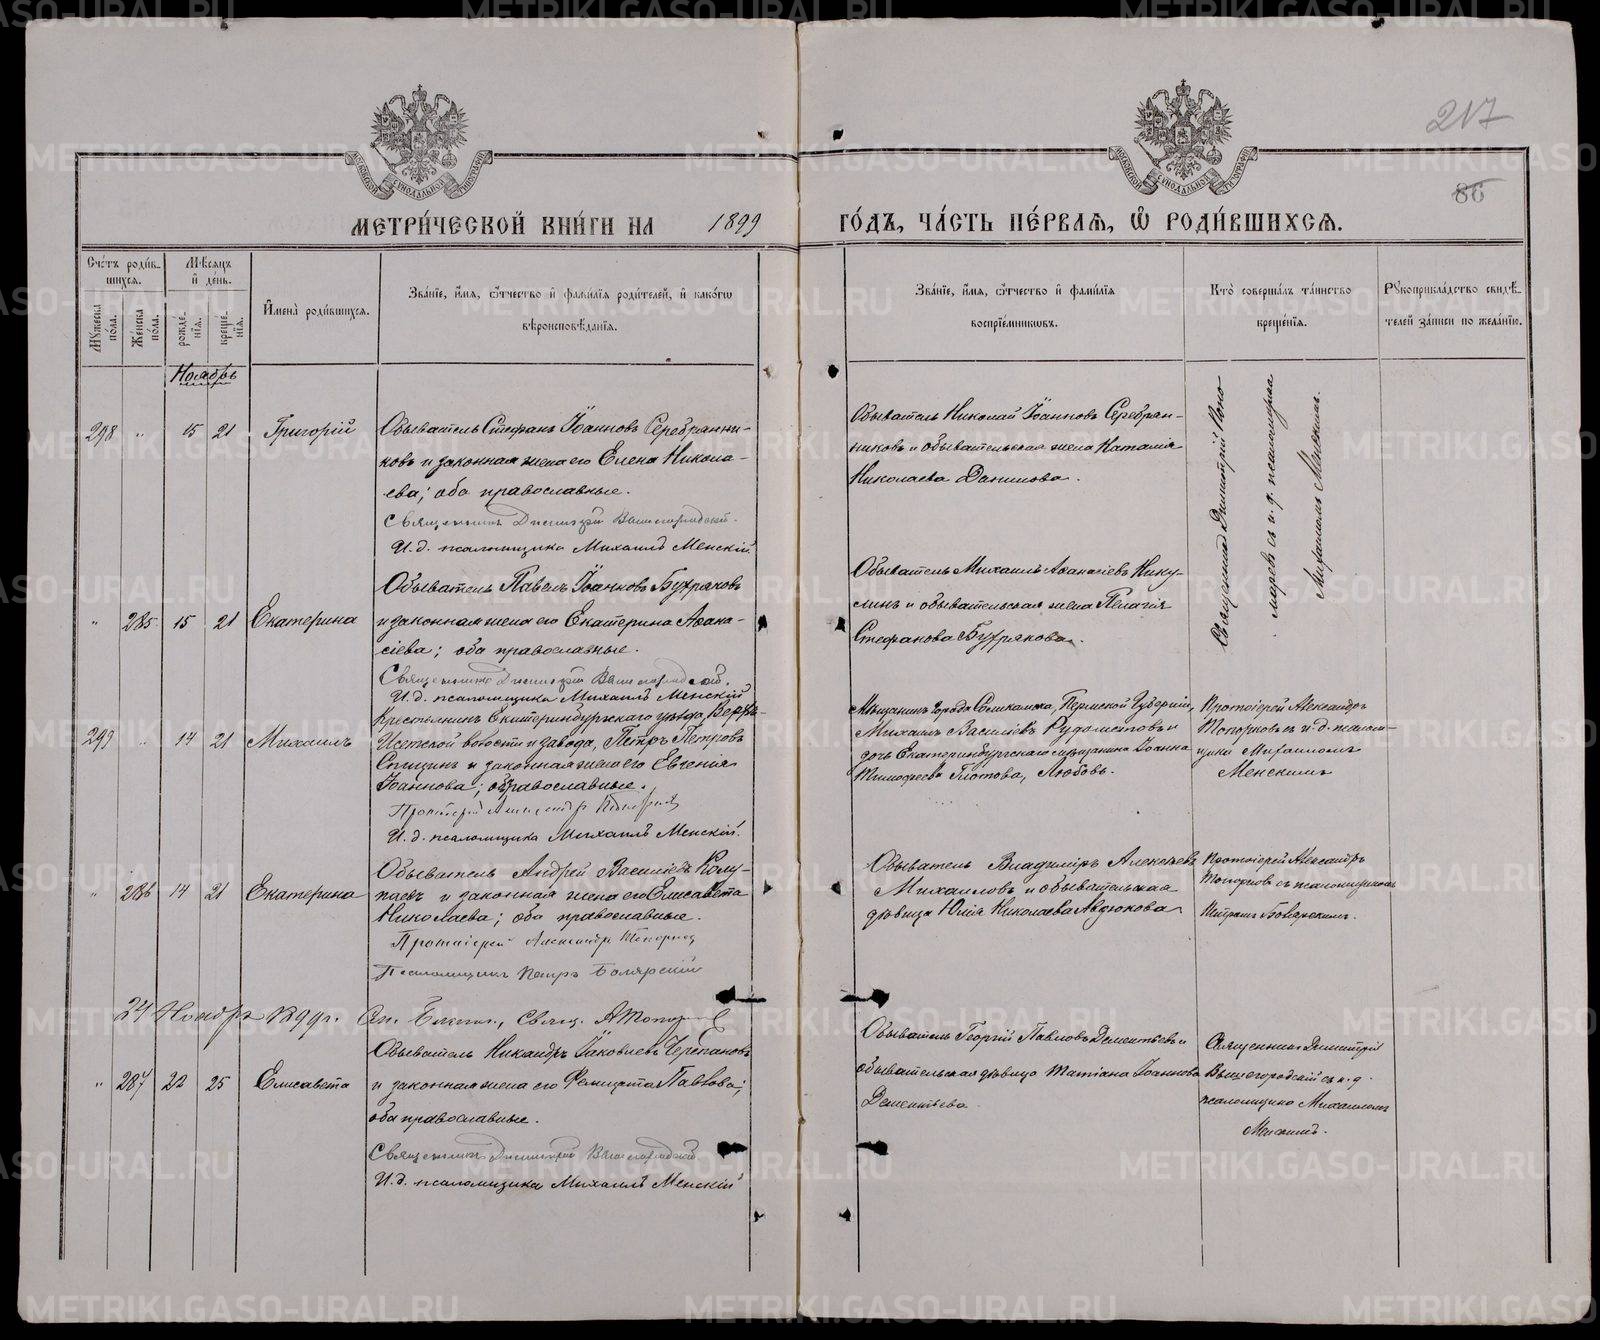 217
86
МЕТРИ́ЧЕСКОЙ КНИ́ГИ НА 1899 ГО́ДЪ, ЧА́СТЬ ПЕ́РВАѦ, Ѡ҆ РОДИ́ВШИХСѦ.
Сче́тъ роди́вшихся.
Мꙋ́жеска по́ла.
Же́нска по́ла.
Мѣ́сяцъ и҆ де́нь.
рожде́нїѧ.
креще́нїѧ.
И҆мена̀ роди́вшихся.
Зва́нїе, и҆́мѧ, ѻ҆́тчество и҆ фами́лїѧ роди́телей, и҆ како́гѡ
вѣроисповѣ́данїѧ.
Зва́нїе, и҆́мѧ, ѻ҆́тчество и҆ фами́лїѧ
воспрїе́мниковъ.
Кто̀ соверша́лъ та́инство
креще́нїѧ.
Рꙋкоприкла́дство свидѣ́телей за́писи по жела́нїю.
Ноябрь
298 " 15 21 Григорій
Обыватель Стефанъ Іоанновъ Серебрянни-
ковъ и законная жена его Елена Никола-
ева; оба православные.
Священникъ Димитрій Вышегородскій.
И.д. псаломщика Михаилъ Менскій.
Обыватель Николай Іоанновъ Серебрян-
никовъ и обывательская жена Наталія
Николаева Данилова.
" 285 15 21 Екатерина
Обыватель Павелъ Іоанновъ Бухряковъ
и законная жена его Екатерина Аѳана-
сіева; оба православные.
Священникъ Димитрій Вышегородскій.
И.д. псаломщика Михаилъ Менскій
Обыватель Михаилъ Аѳанасіевъ Нику-
линъ и обывательская жена Пелагія
Стефанова Бухрякова.
Михаиломъ Менскимъ.
299 " 14 21 Михаилъ
Крестьянинъ Екатеринбургскаго уѣзда, Верхъ-
Исетской волости и завода, Петръ Петровъ
Спицинъ и законная жена его Евгенія
Іоаннова; православные.
Протоіерей Александръ Топорковъ
И.д. псаломщика Михаилъ Менскій.
Мѣщанинъ города Соликамска, Пермской Губерніи,
Михаилъ Василіевъ Рудометовъ и
дочь Екатеринбургскаго мѣщанина Іоанна
Тимофеева Глотова, Любовь.
Протоіерей Александръ
Топорковъ съ и.д. псалом-
щика Михаиломъ
Менскимъ
" 286 14 21 Екатерина
Обыватель Андрей Василіевъ Колу-
паевъ и законная жена его Елисавета
Николаева; оба православные.
Протоіерей Александръ Топорковъ
Псаломщикъ Петръ Боярскій
Обыватель Владиміръ Алексѣевъ
Михаиловъ и обывательская
дѣвица Юлія Николаева Авдюкова
Протоіерей Александръ
Топорковъ съ псаломщикомъ
Петромъ Боярскимъ.
24 Ноября 1899 г. Свящ. А Топорковъ
" 287 22 25 Елисавета
Обыватель Никандръ Іаковлевъ Черепановъ
и законная жена его Фелицата Павлова;
оба православные.
Священникъ Димитрій Вышегородскій
И.д. псаломщика Михаилъ Менскій
Обыватель Георгій Павловъ Дементьевъ и
обывательская дѣвица Татіана Іоаннова
Дементьева
Священникъ Димитрій
Вышегородскій съ и.д.
псаломщика Михаиломъ
Менскимъ.
METRIKI.GASO-URAL.RU